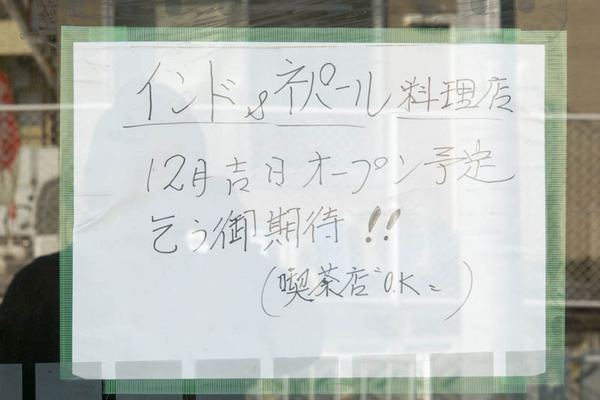 インド&ネパール料理店
12月吉日オープン予定
乞う御期待!!
(喫茶店〃O.K=)